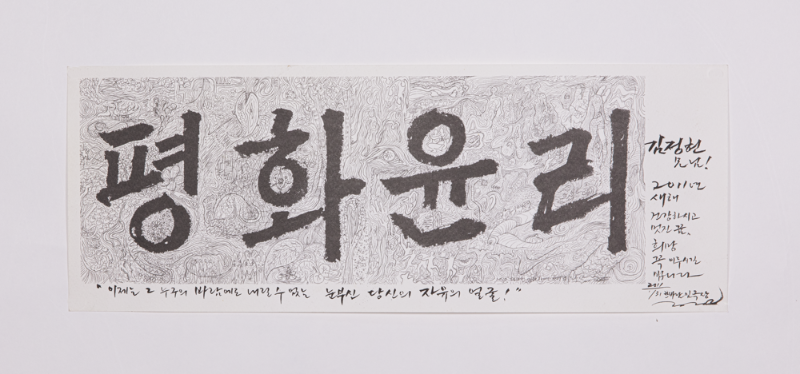 평화윤리
"이제는 그 누구의 바람대로 내릴 수 없는 눈부신 당신의 자유의 얼굴!"
김정헌
님!
2011년
새해
건강하시고
멋진 꿈,
희망
꼭 이루시길
빕니다
2011